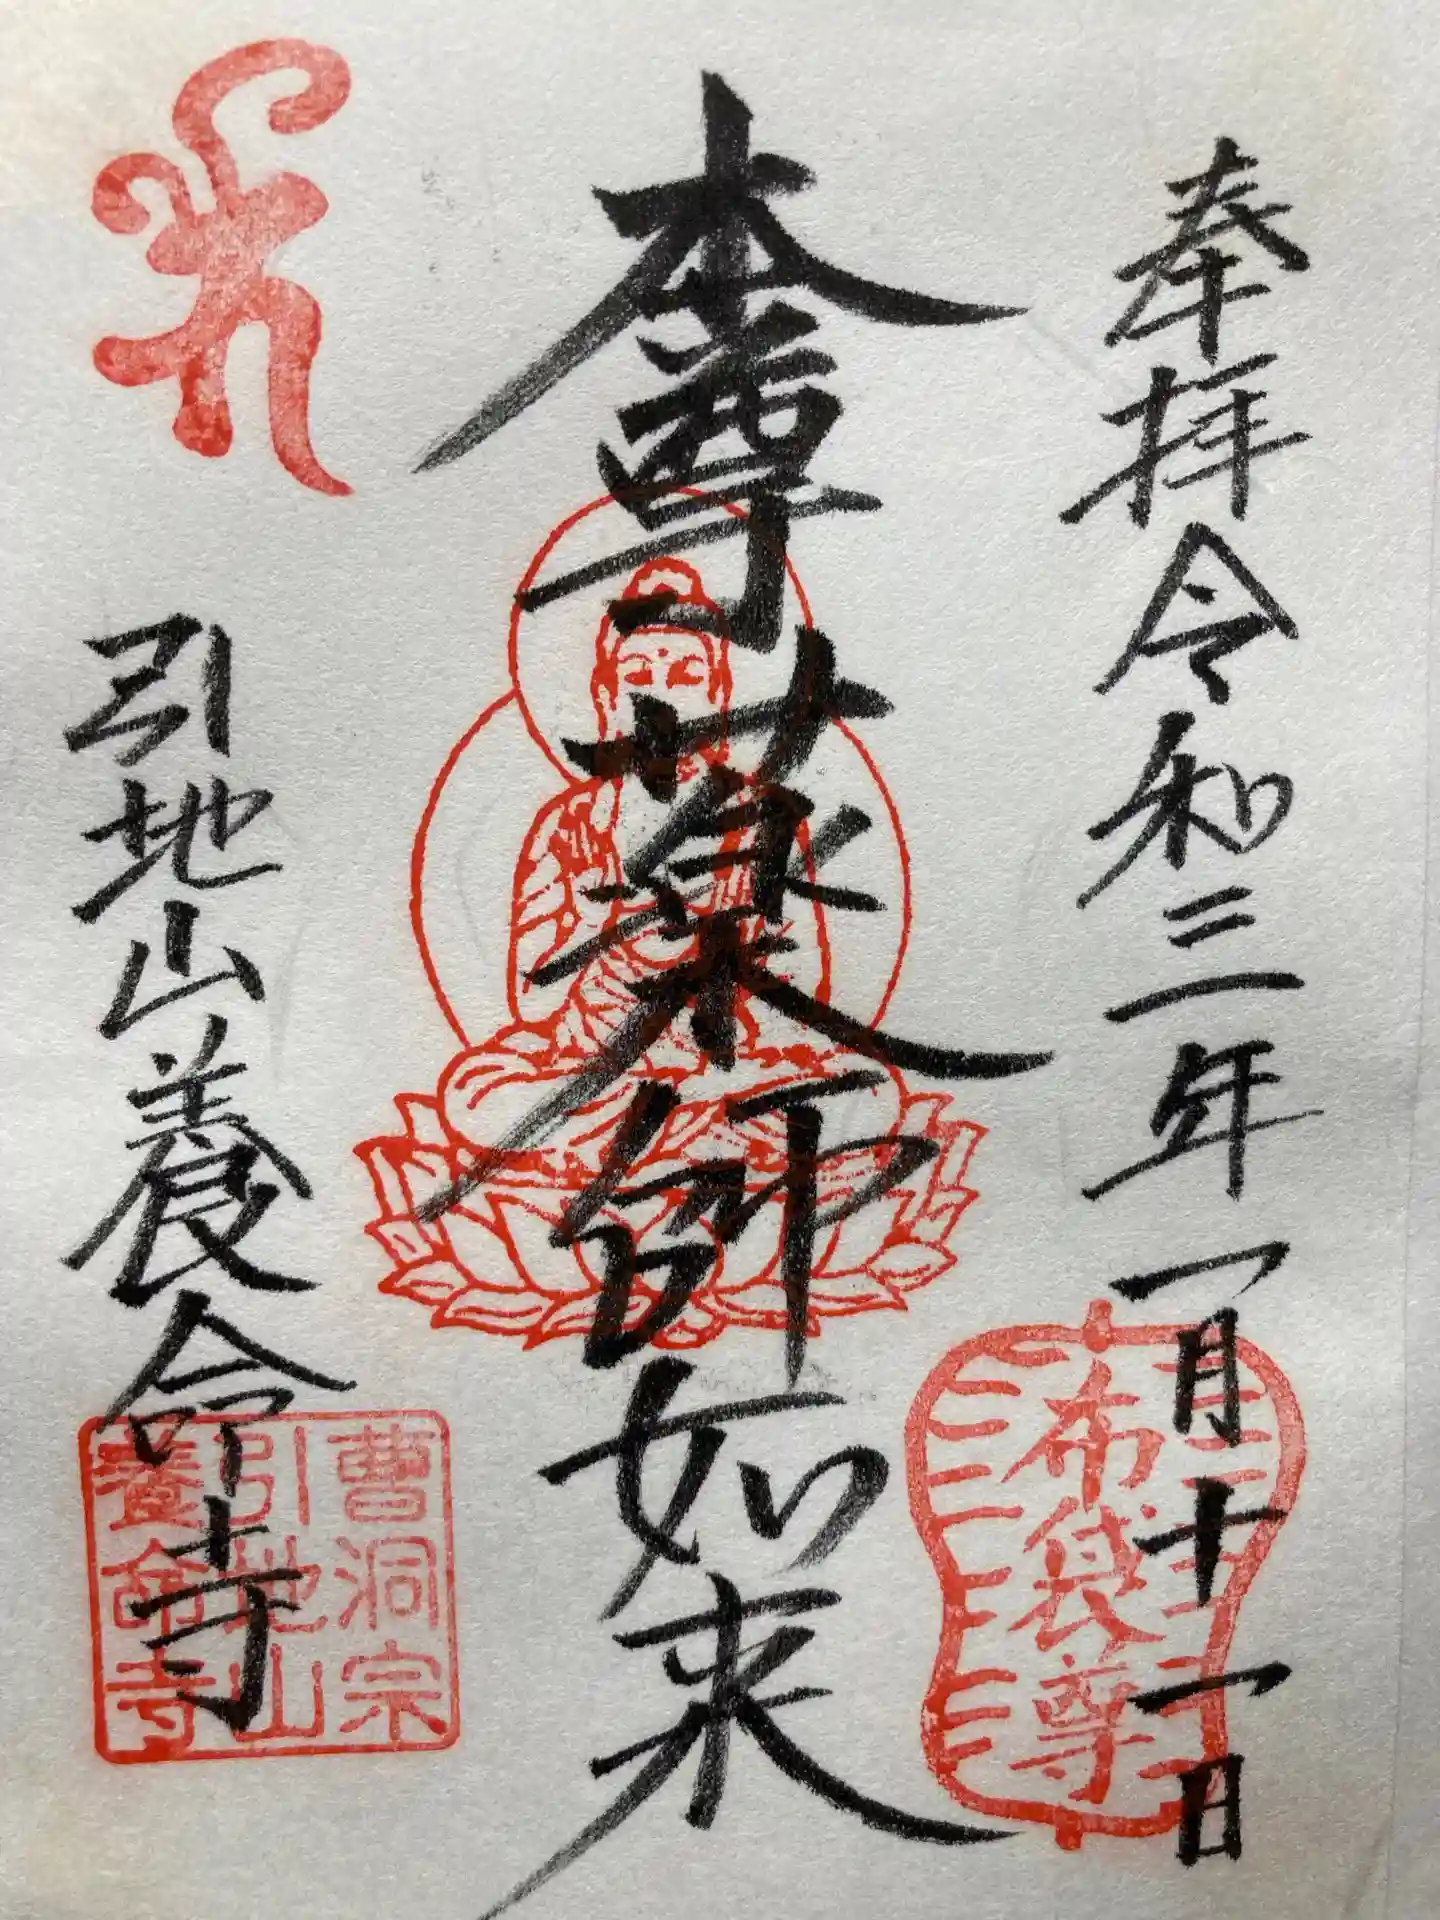 奉拝令和三年一月十一日
布袋尊
本尊薬師如来
引地山養命寺
曹洞宗
引地山
養命寺